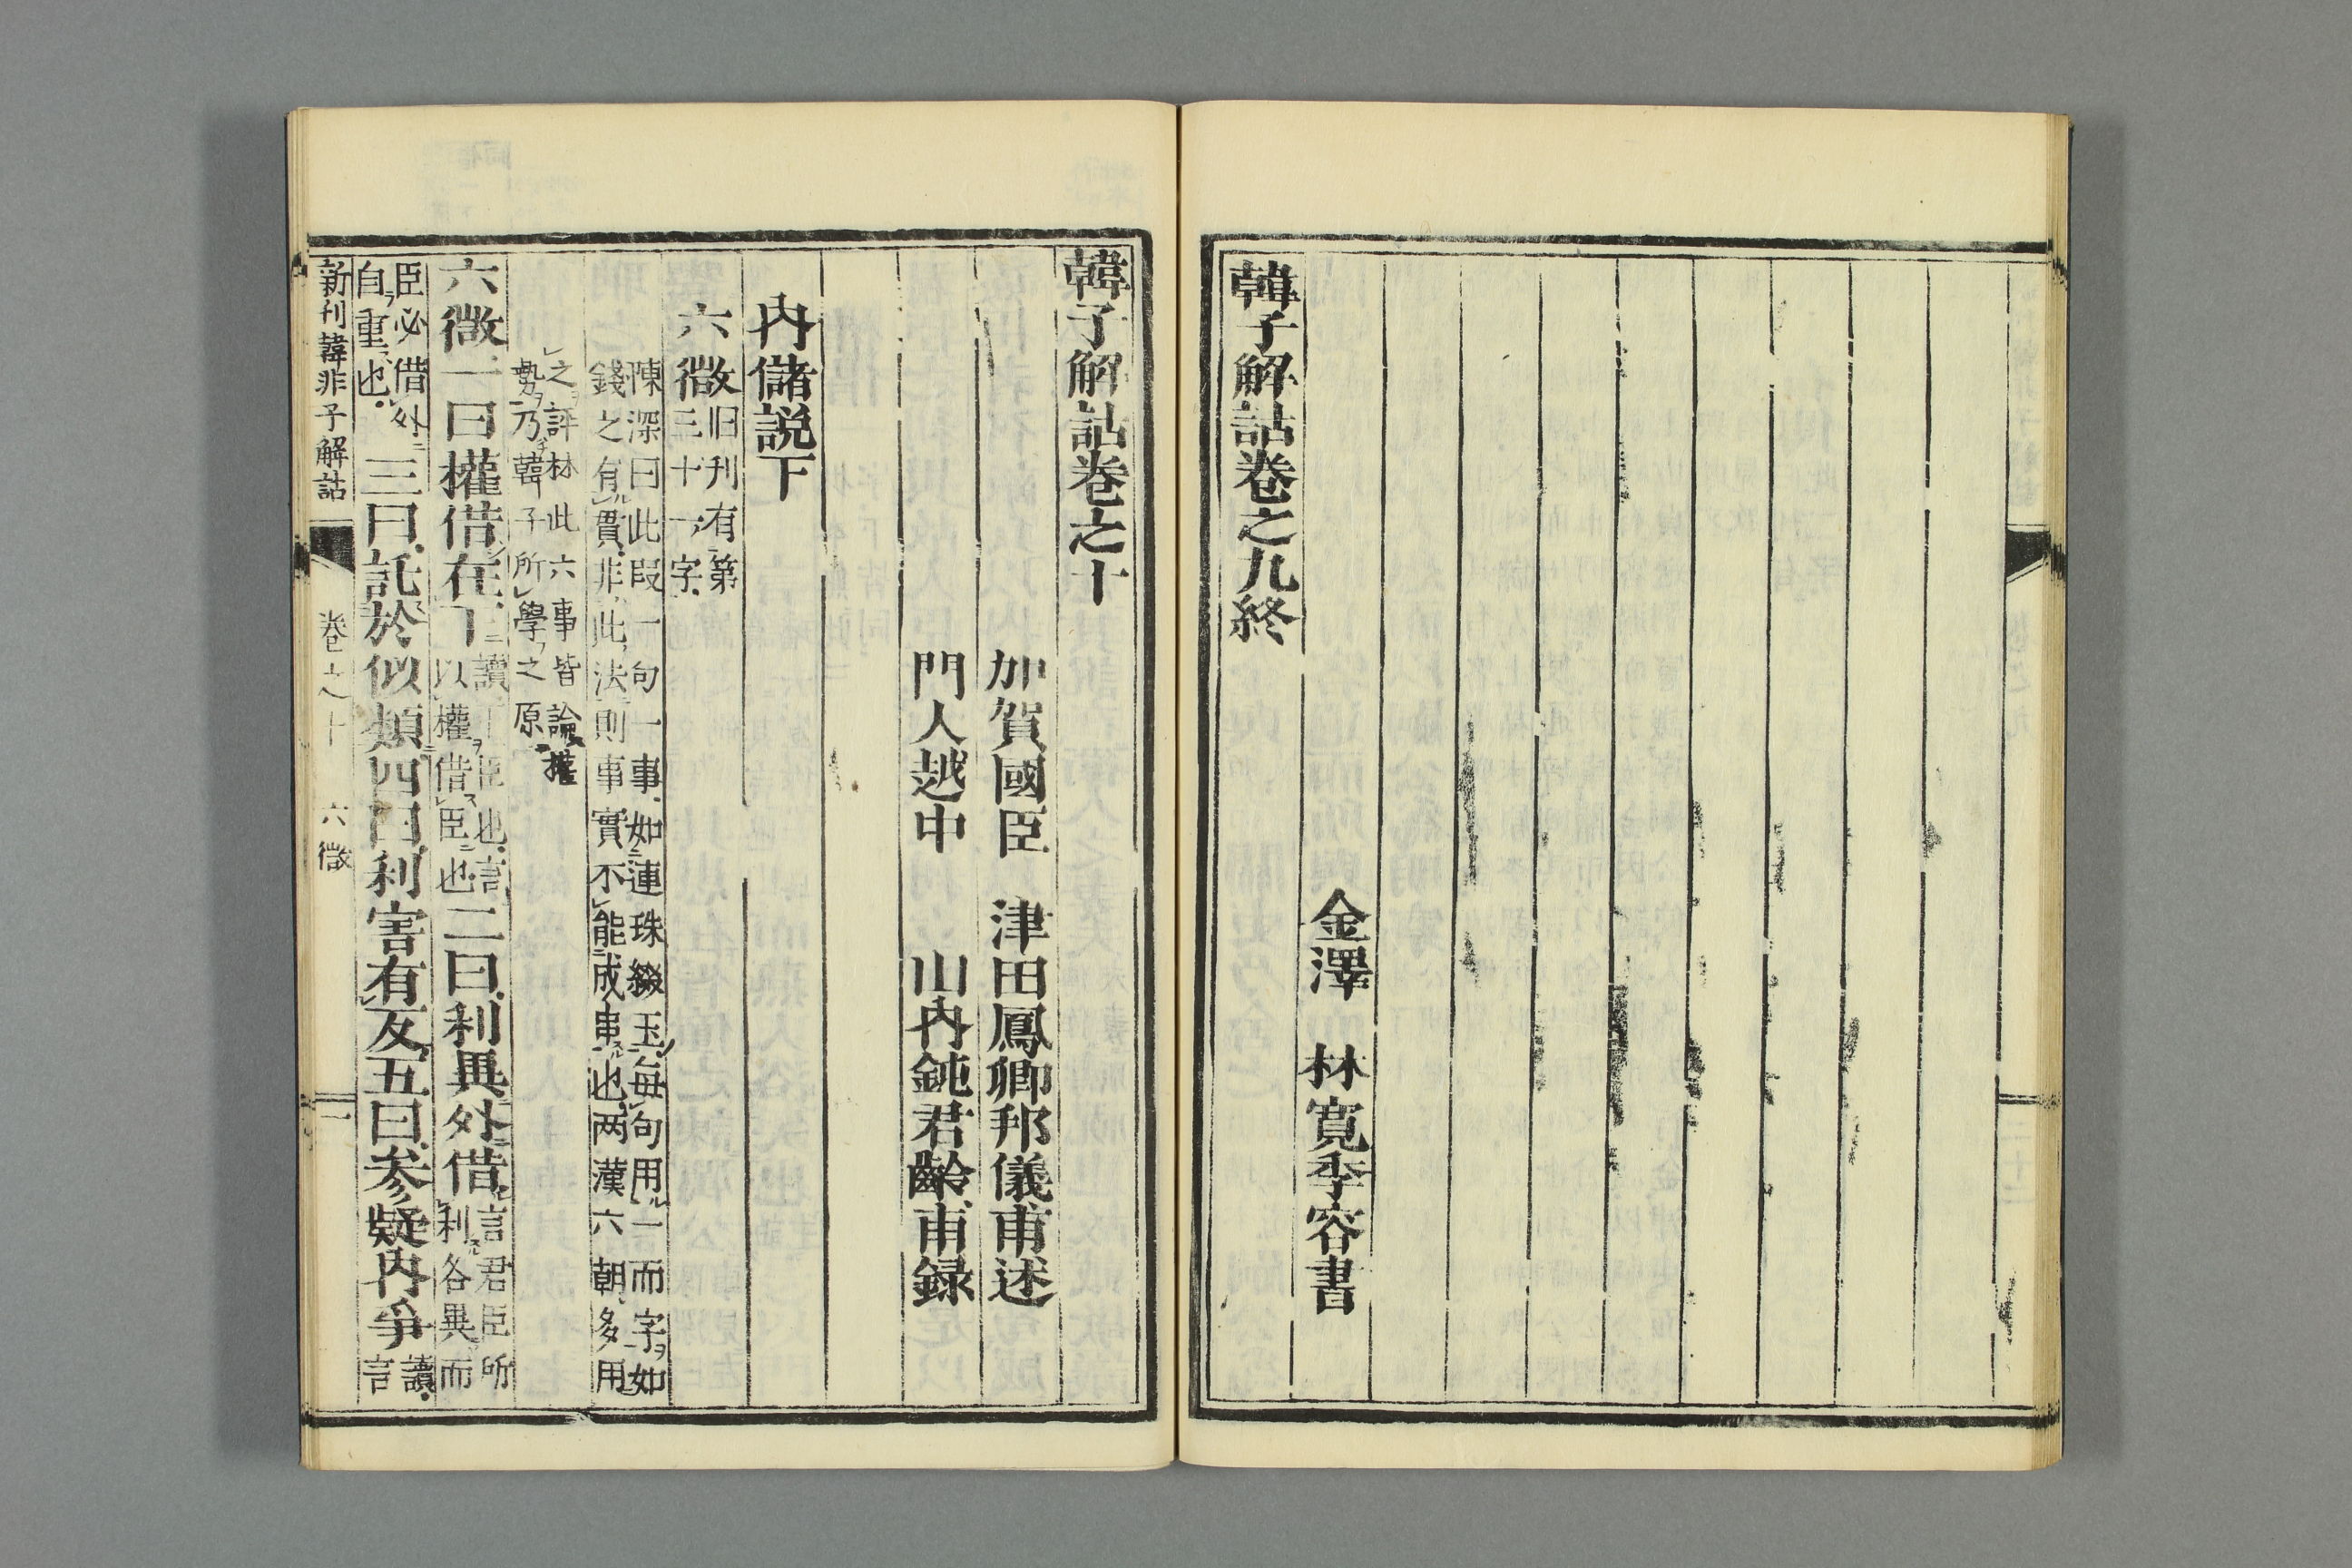 金澤　林寬季容書
韓子解詁卷之九終
韓子解詁卷之十
加賀國臣　津田鳳卿邦儀甫述
門人越中　山內鈍君齡甫録
內儲説下
六微
旧刊有第
三十一字
陳深曰此段一句一事如連珠綴玉每句用一而字如
錢之有貫非此法則事實不能成串也两漢六朝多用
之評林此六事皆論權
勢乃韓子所學之原
六微一曰權借在下
以權借臣也
二曰利異外借
言君臣所
利各異而
臣必借外
自重也
三曰託於似類四曰利害有反五曰参疑內爭
讀
言
新刊韓非子解詁
卷之十
六微
一